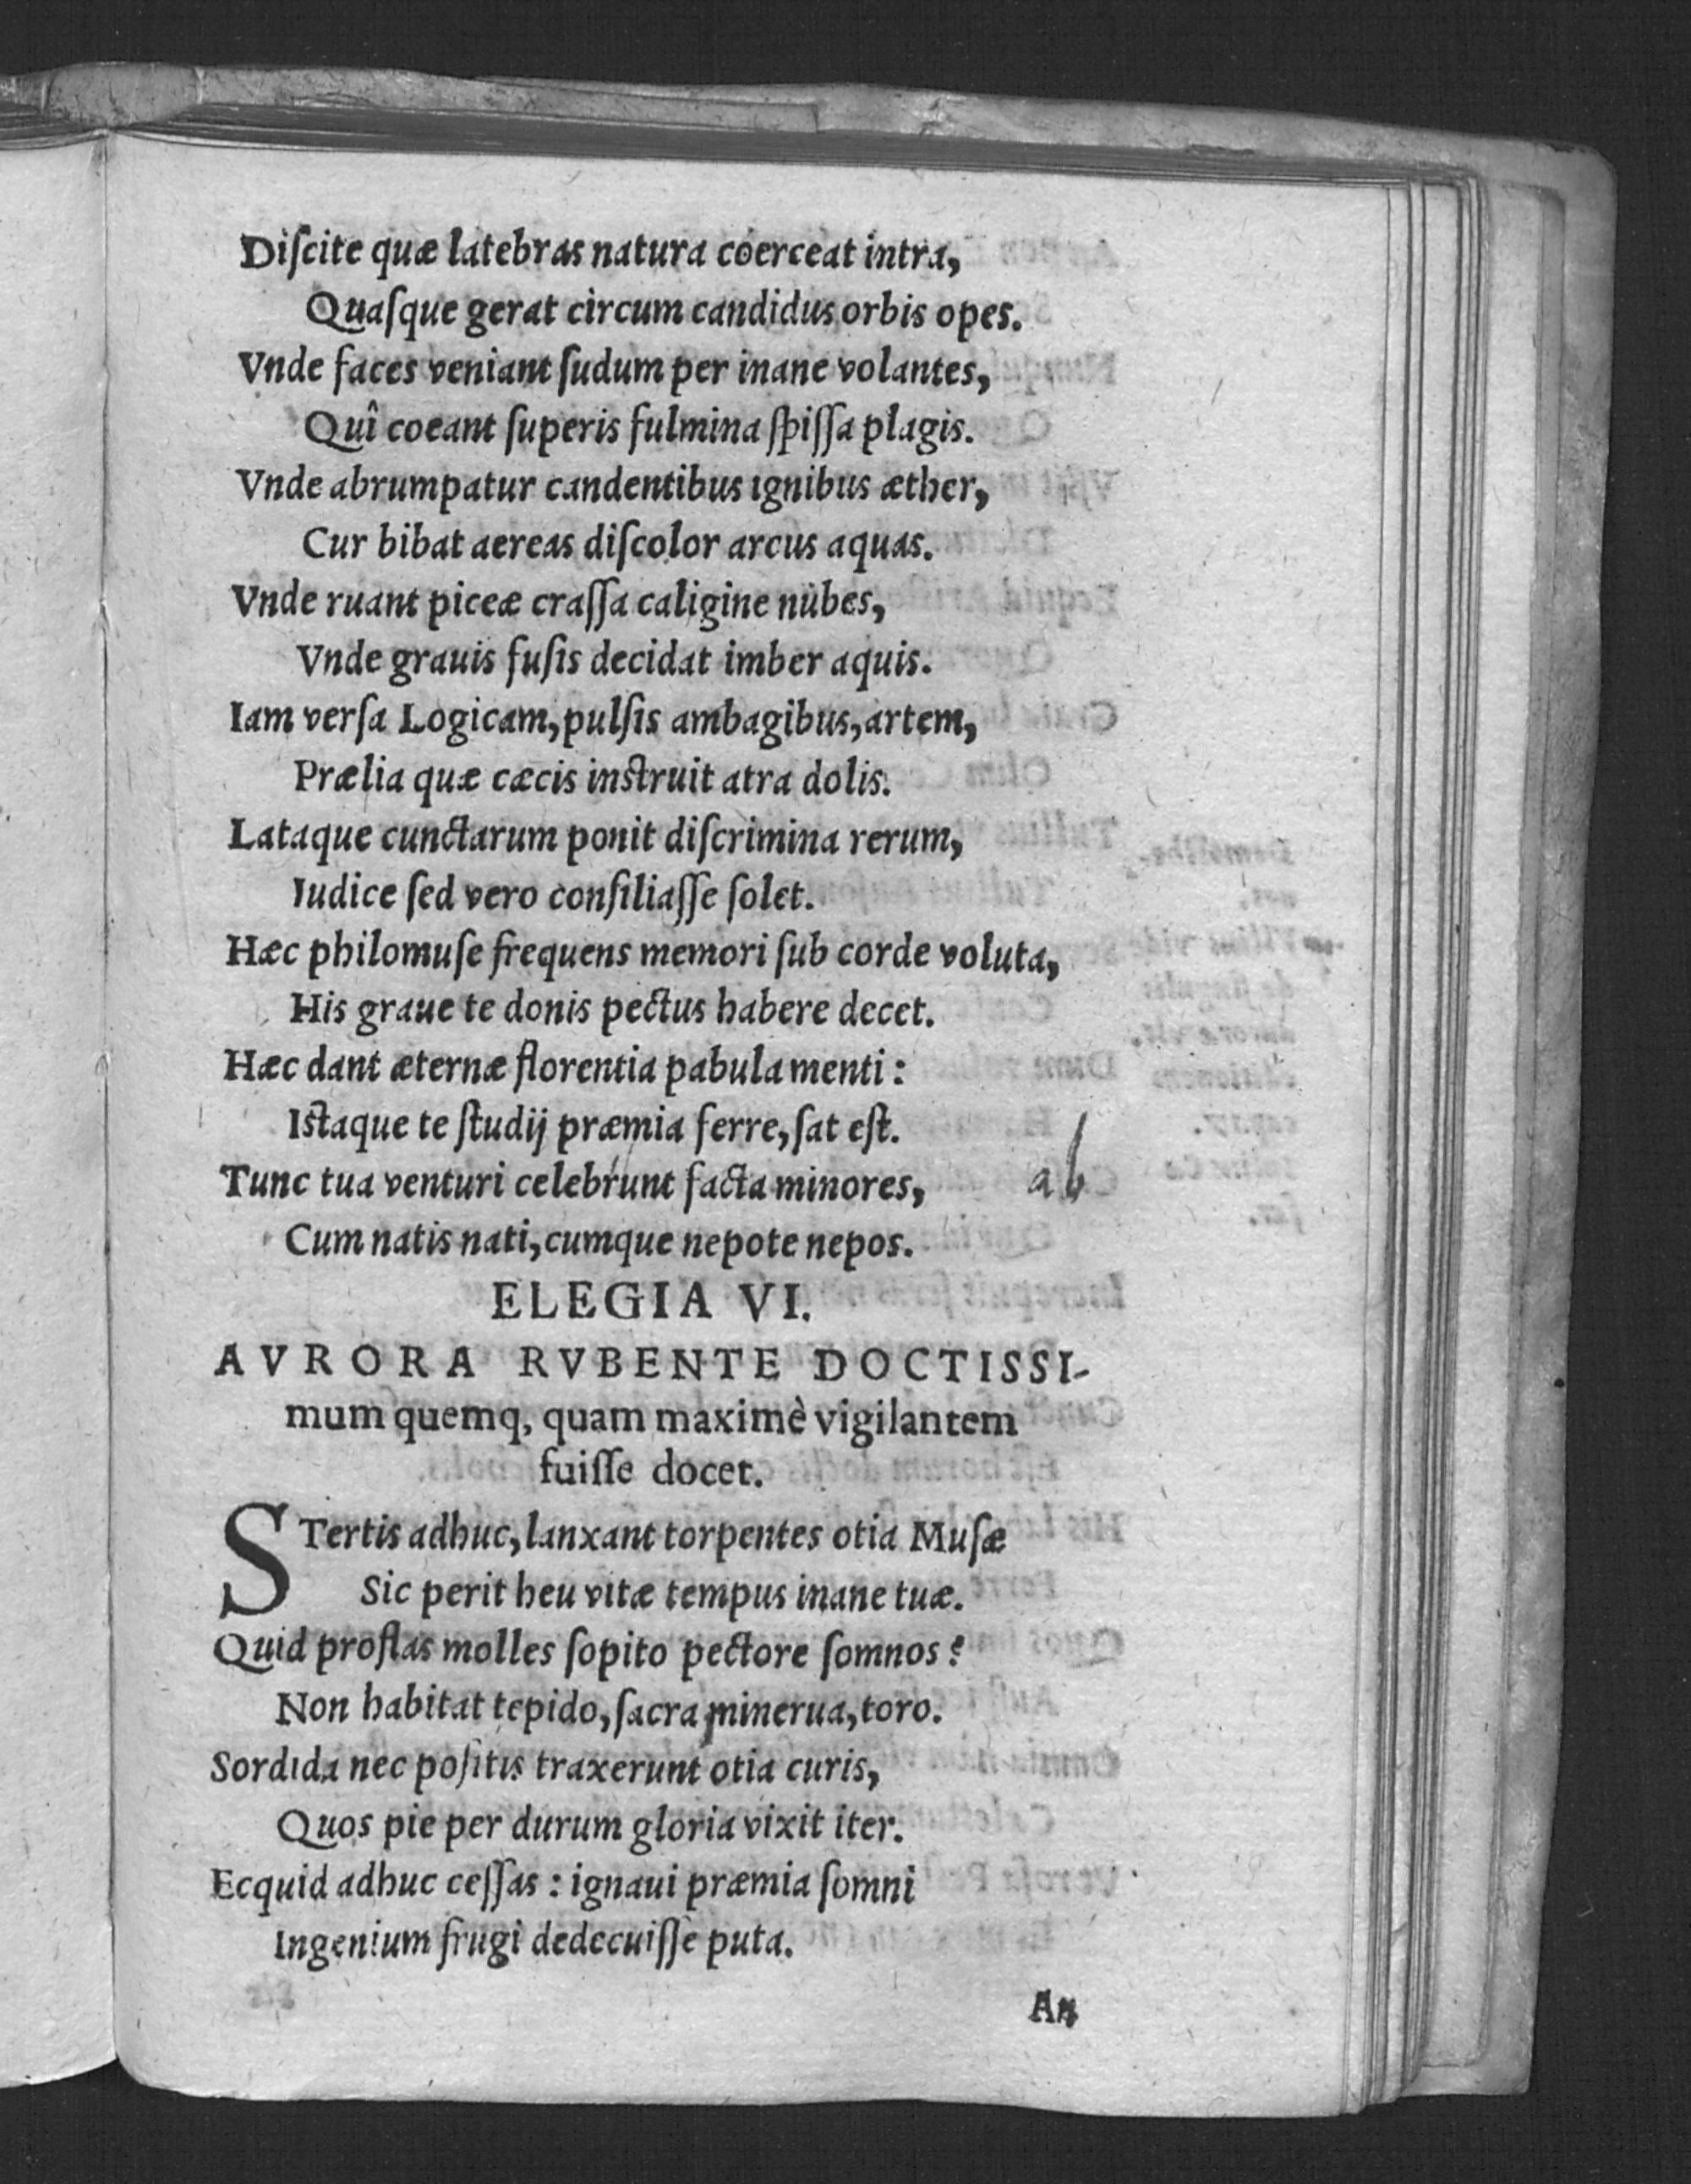 Diſcite quæ latebras natura coerceat intra,
Quaſque gerat circum candidus orbis opes.
Vnde faces veniant ſudum per inane volantes,
Quî coeant ſuperis fulmina ſpiſſa plagis.
Vnde abrumpatur candentibus ignibus æther,
Cur bibat aereas diſcolor arcus aquas.
Vnde ruant piceæ craſſa caligine nubes,
Vnde grauis fuſis decidat imber aquis.
Iam verſa Logicam, pulſis ambagibus, artem,
Prælia quæ cæcis inſtruit atra dolis.
Lataque cunctarum ponit diſcrimina rerum,
Iudice ſed vero conſiliaſſe ſolet.
Hæc philomuſe frequens memori ſub corde voluta,
His graue te donis pectus habere decet.
Hæc dant æternæ florentia pabula menti:
Iſtaque te ſtudij præmia ferre, ſat eſt.
Tunc tua venturi celebrunt facta minores, ab
Cum natis nati, cumque nepote nepos.
ELEGIA VI.
AVRORA RVBENTE DOCTISSI-
mum quemq, quam maximè vigilantem
fuiſſe docet.
STertis adhuc, lanxant torpentes otia Muſæ
Sic perit heu vitæ tempus inane tuæ.
Quid proflas molles ſopito pectore ſomnos?
Non habitat tepido, ſacra minerua, toro.
Sordida nec poſitis traxerunt otia curis,
Quos pie per durum gloria vixit iter.
Ecquid adhuc ceſſas: ignaui præmia ſomni
Ingenium frugi dedecuiſſe puta.
An